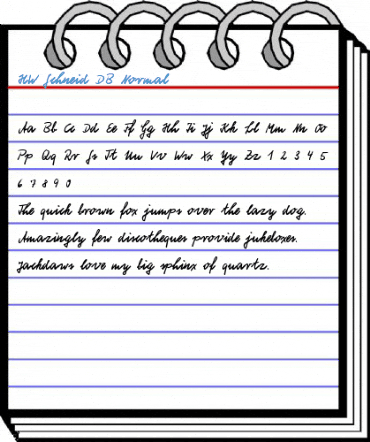 HW Schneid DB Normal
Aa Bb Cc Dd Ee Ff Gg Hh Ii Jj Kk Ll Mm Nn Oo
Pp Qq Rr Ss Tt Uu Vv Ww Xx Yy Zz 1 2 3 4 5
6 7 8 9 0
The quick brown fox jumps over the lazy dog.
Amazingly few discotheques provide jukeboxes.
Jackdaws love my big sphinx of quartz.